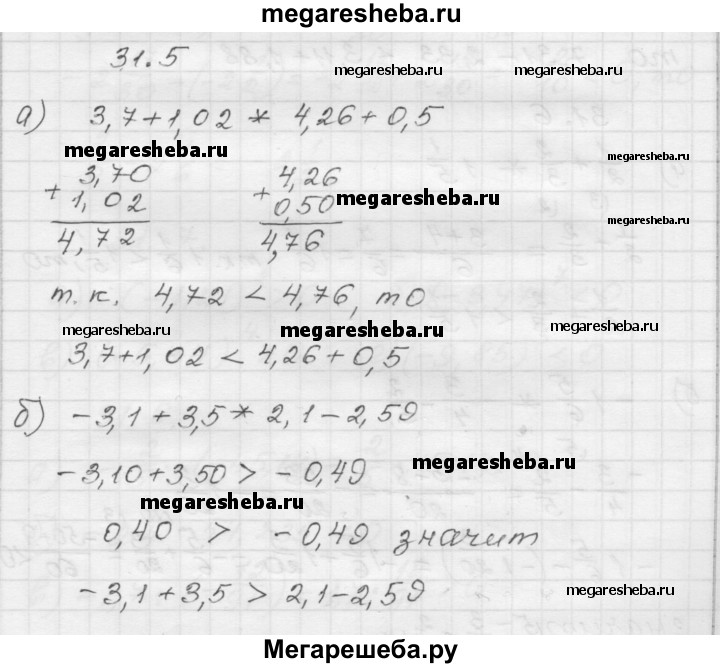 megaresheba.ru
31.5
megaresheba.ru megaresheba.ru
а) 3,7+1,02 * 4,26+0,5
megaresheba.ru
3,70 4,26
+ 1,02 + 0,50 megaresheba.ru
megaresheba.ru
4,72 4,76
т.к. 4,72 < 4,76, то
megaresheba.ru megaresheba.ru megaresheba.ru
3,7+1,02 < 4,26+0,5
б) -3,1+3,5 * 2,1-2,59
-3,10+3,50 > -0,49 megaresheba.ru
megaresheba.ru
0,40 > -0,49 значит
-3,1+3,5 > 2,1-2,59 megaresheba.ru
Мегарешеба.ру